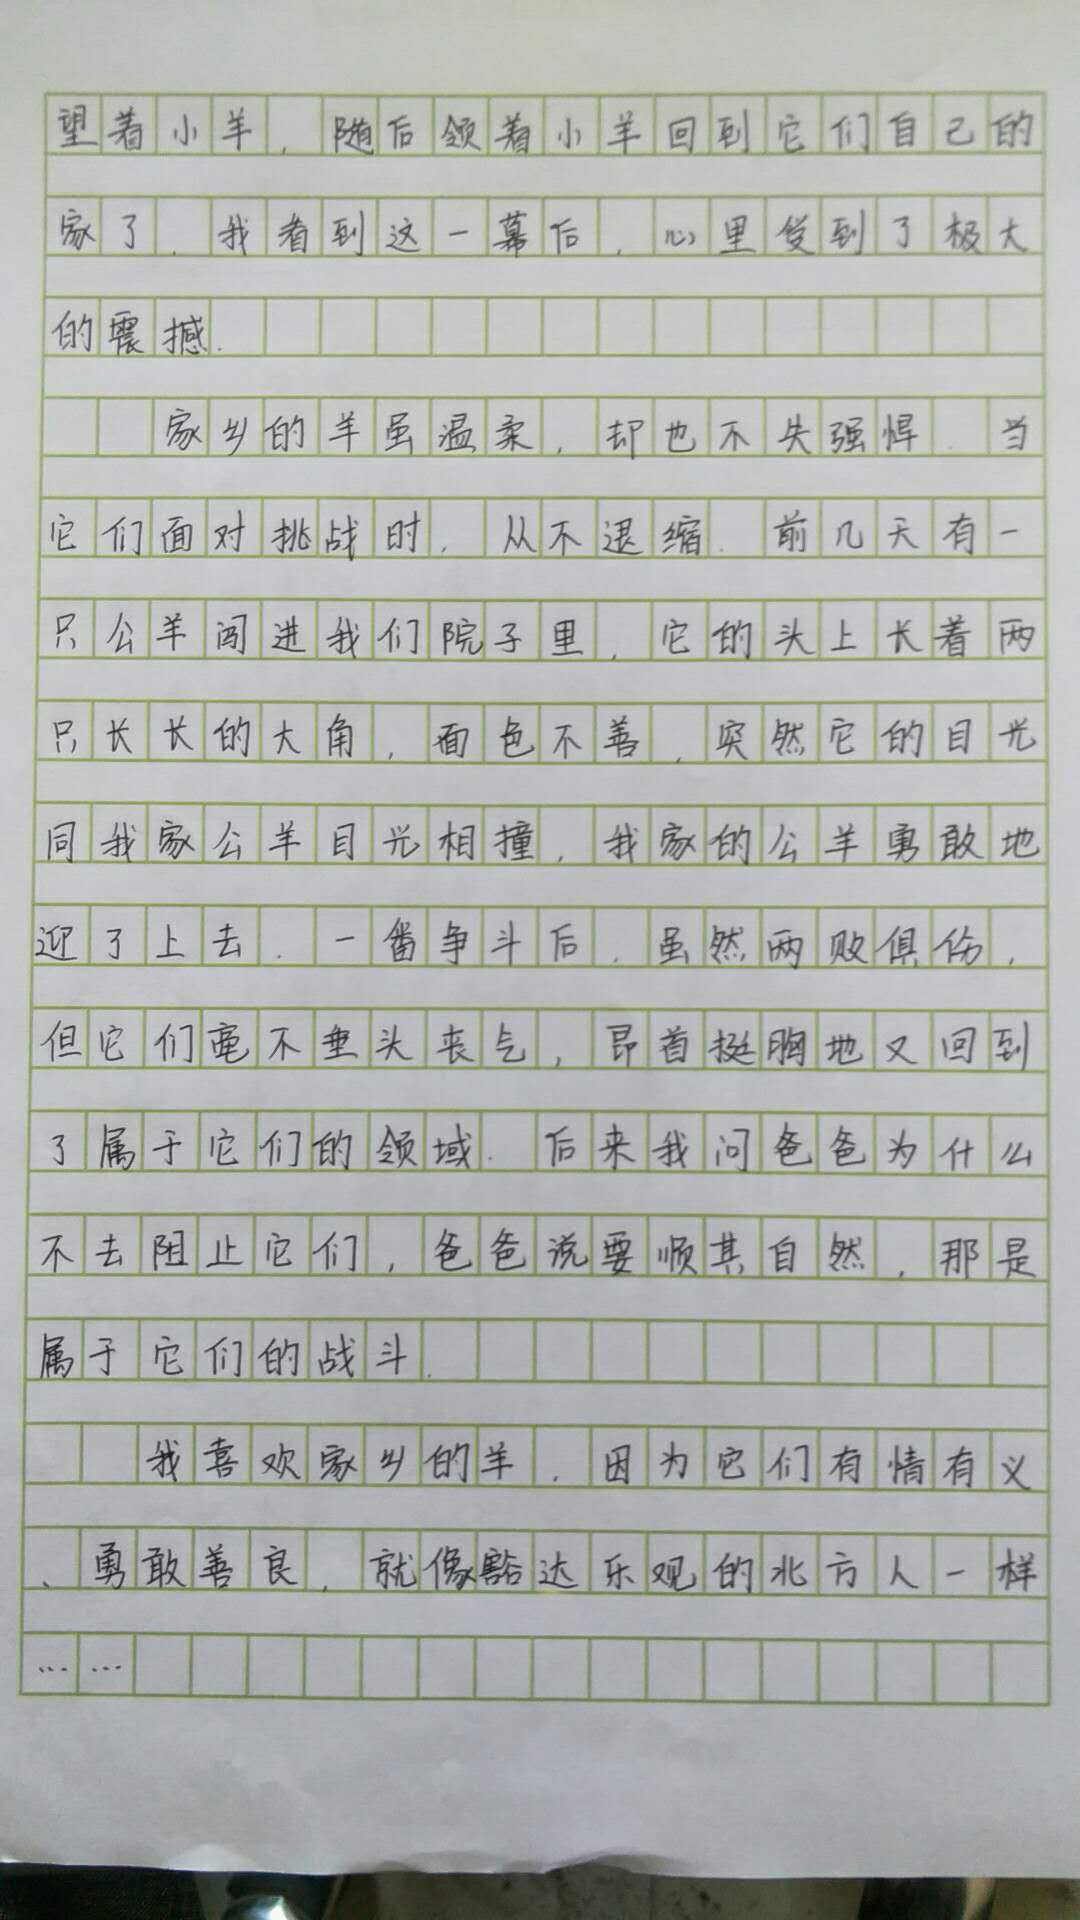 望着小羊，随后领着小羊回到它们自己的
家了．我看到这一幕后，心里受到了极大
的震撼．
家乡的羊虽温柔，却也不失强悍．当
它们面对挑战时，从不退缩．前几天有一
只公羊闯进我们院子里，它的头上长着两
只长长的大角，面色不善，突然它的目光
同我家公羊目光相撞，我家的公羊勇敢地
迎了上去．一番争斗后，虽然两败俱伤，
但它们毫不垂头丧气，昂首挺胸地又回到
了属于它们的领域．后来我问爸爸为什么
不去阻止它们，爸爸说要顺其自然，那是
属于它们的战斗．
我喜欢家乡的羊，因为它们有情有义
、勇敢善良，就像豁达乐观的北方人一样
……